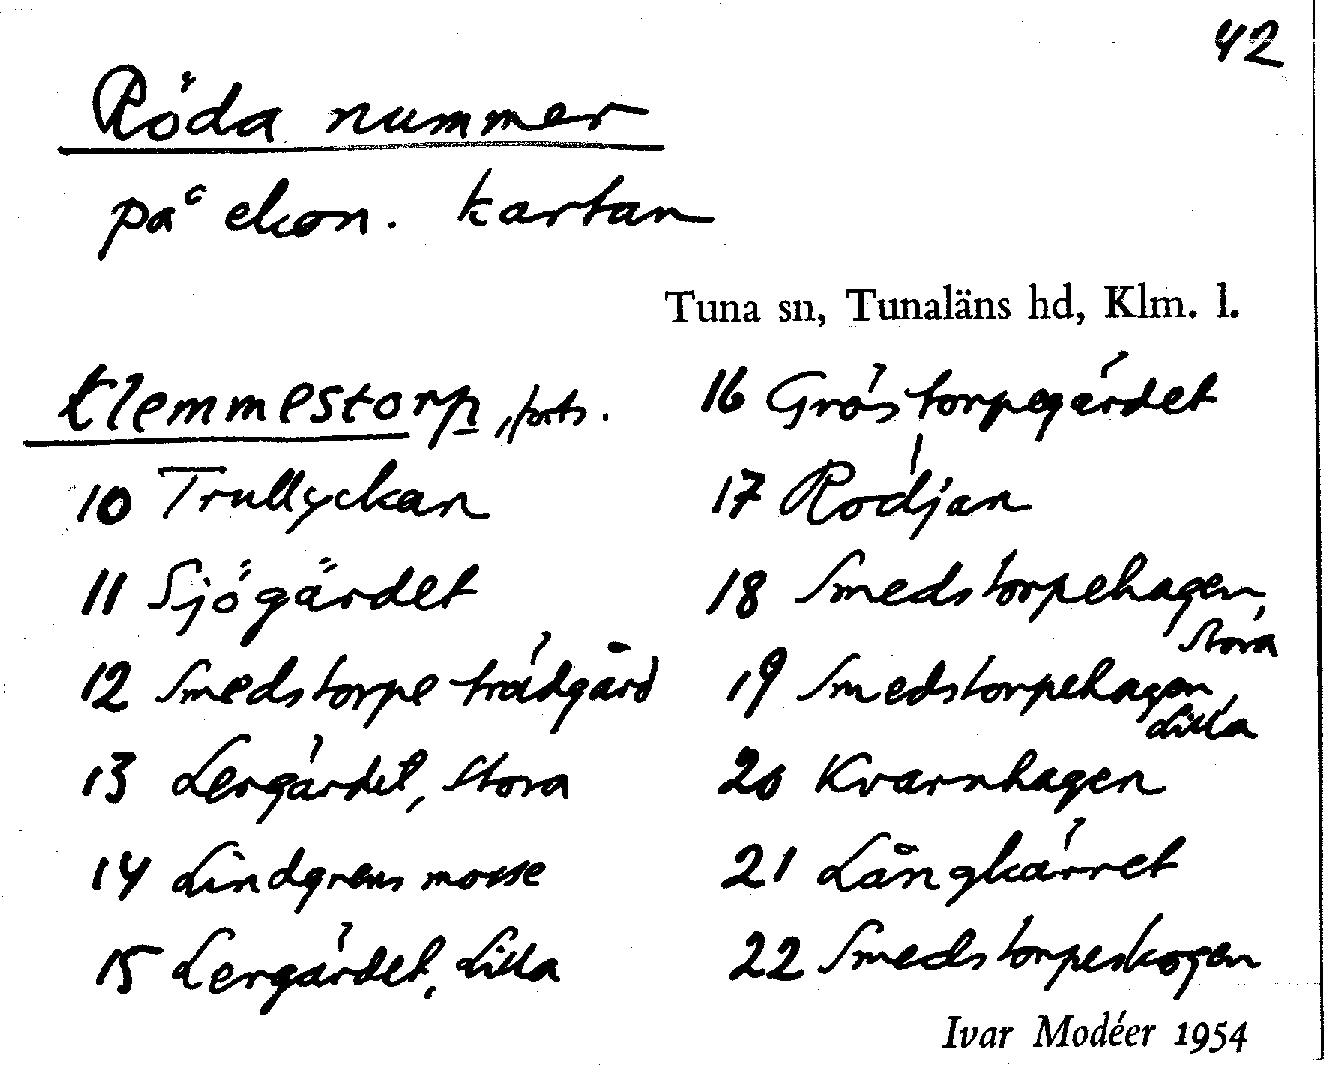 42
Röda nummer
på ekon. kartan
Tuna sn, Tunaläns hd, Klm. l.
Klemmestorp, forts.
10 Trullyckan
11 Sjögärdet
12 Smedstorpe trädgård
13 Lergärdet, Stora
14 Lindgrens mosse
15 Lergärdet, Lilla
16 Gröstorpegärdet
17 Rödjan
18 Smedstorpehagen, Stora
19 Smedstorpehagen, Lilla
20 Kvarnhagen
21 Långkärret
22 Smedstorpeskogen
Ivar Modéer 1954